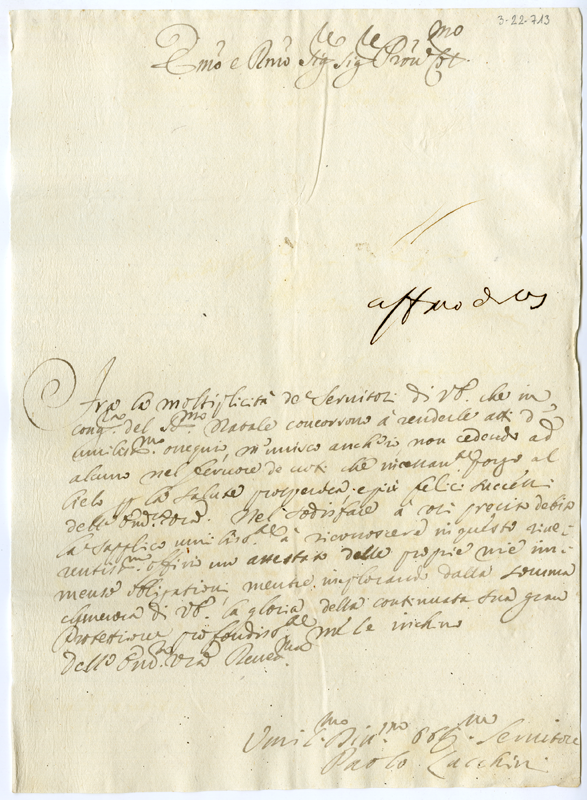 3-22-713
Emo e Rmo Sig.re Sig.re Pron Col.mo
affmo
Fra la moltiplicità de Servitori di VE. che in
cong.ra del SS.mo Natale concorrono à renderle atti d'
umiliss.mo ossequio, m'unisco anch'io non cedendo ad
alcuno nel fervore de voti che incessan.te porgo al
Cielo p la Salute prosperosa, e più felici successi
dell' Em.za Vra. Nel sodisfare à sì preciso debito
la supplico umilis.te à riconoscere in questo rive-
rentis.mo offitio un attestato delle proprie mie im-
mense obligationi mentre implorando dalla somma
clemenza di VE. la gloria della continuata sua gran
Protettione profondiss.te me le inchino
Dell' Em.za Vra Reveren.ma
Umil.mo Div.mo Obl.mo Servitore
Paolo Zacchini